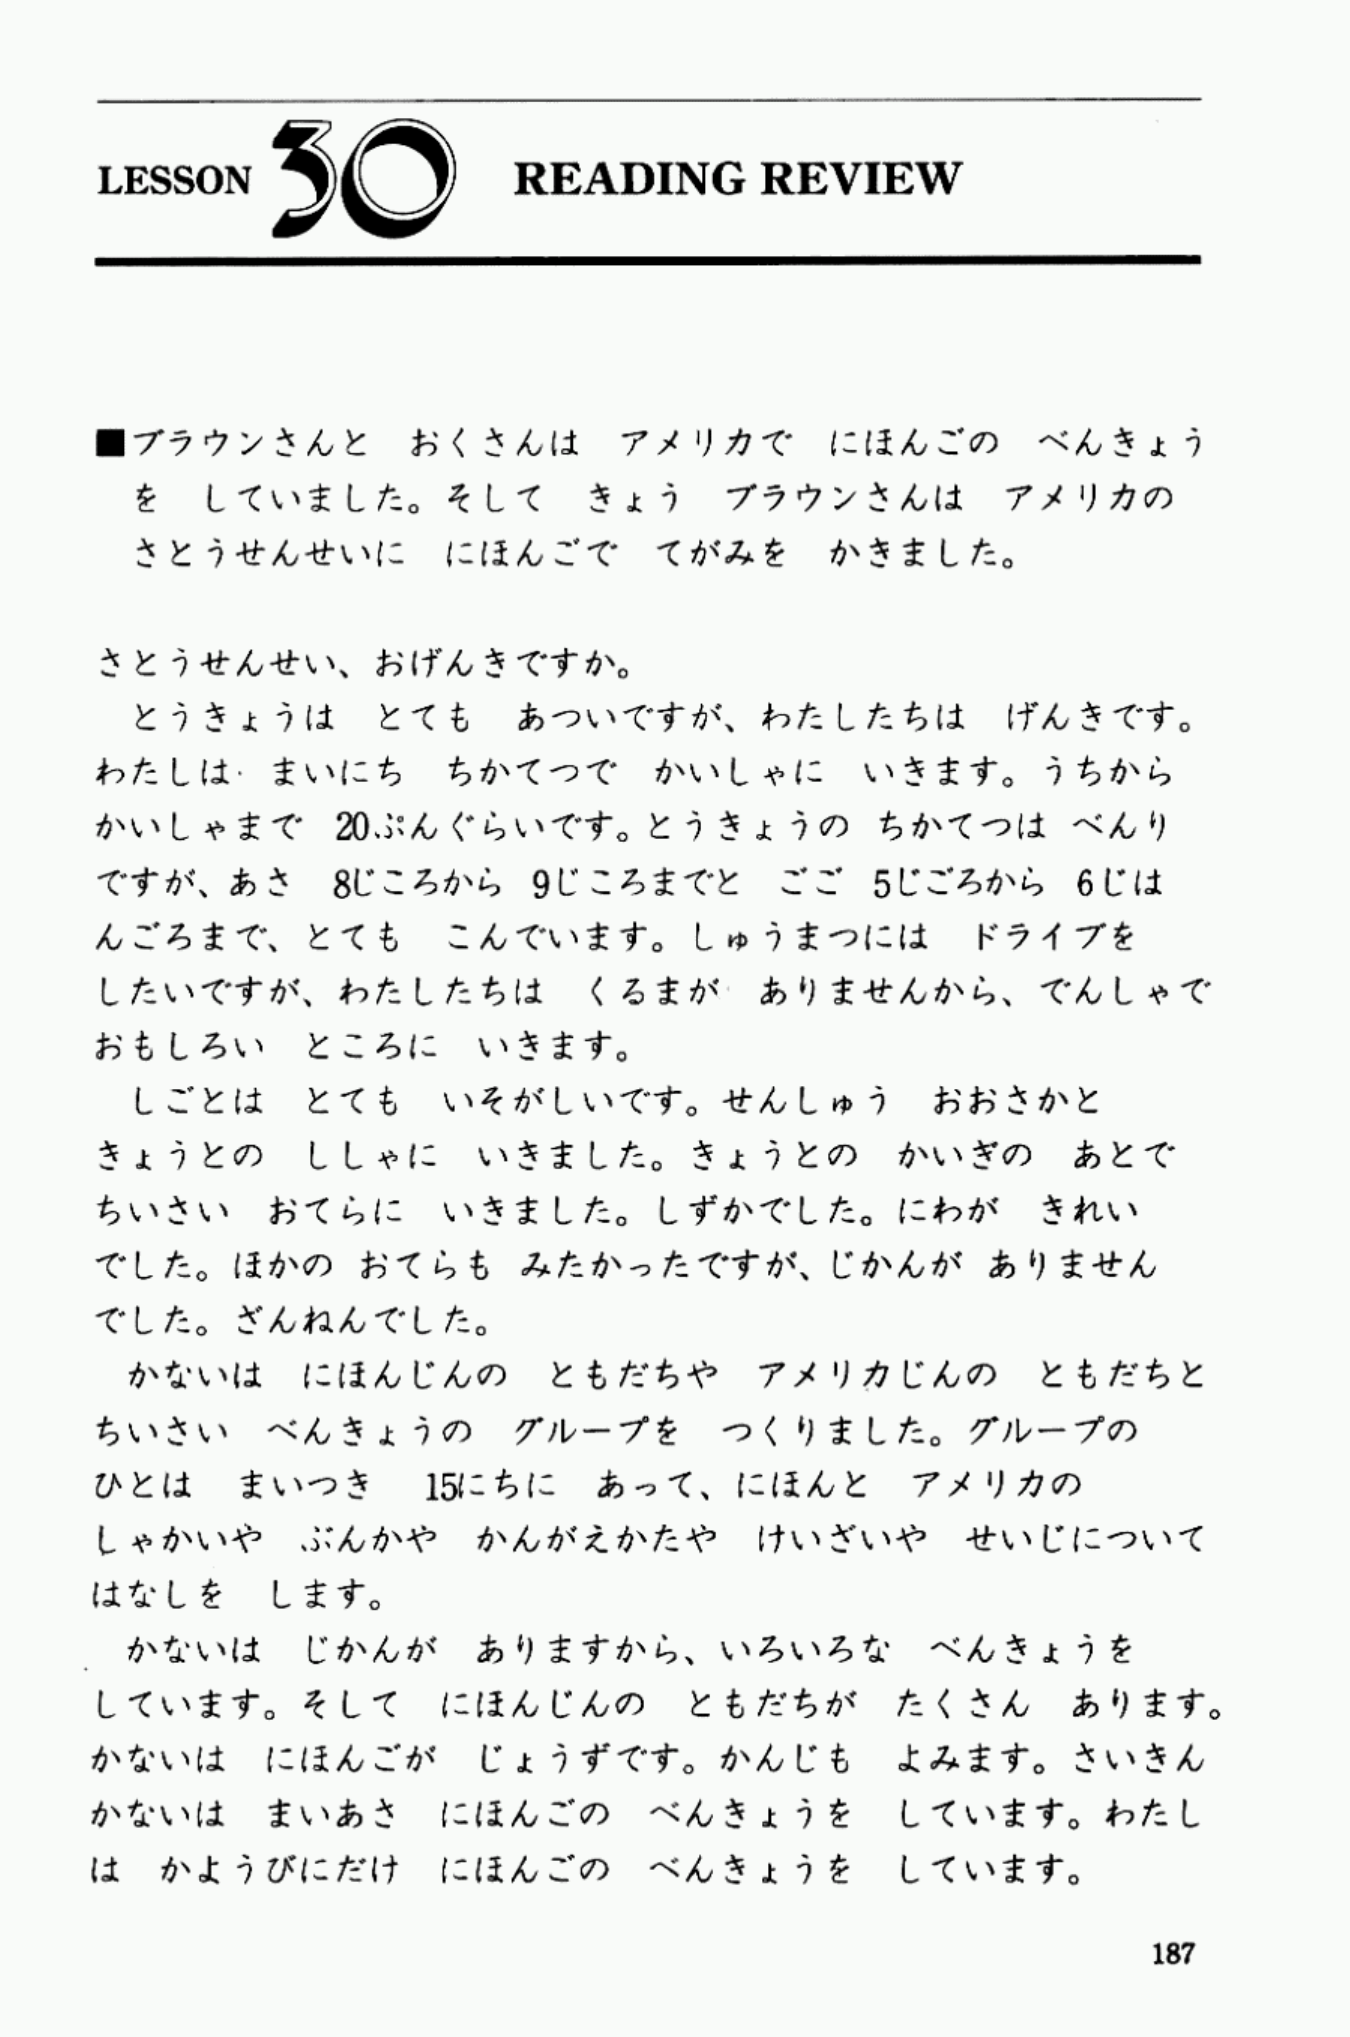 LESSON 30 READING REVIEW
■ブラウンさんと　おくさんは　アメリカで　にほんごの　べんきょう
を　していました。そして　きょう　ブラウンさんは　アメリカの
さとうせんせいに　にほんごで　てがみを　かきました。
さとうせんせい、おげんきですか。
とうきょうは　とても　あついですが、わたしたちは　げんきです。
わたしは　まいにち　ちかてつで　かいしゃに　いきます。うちから
かいしゃまで　20ぷんぐらいです。とうきょうの　ちかてつは　べんり
ですが、あさ　8じころから　9じころまでと　ごご　5じごろから　6じは
んごろまで、とても　こんでいます。しゅうまつには　ドライブを
したいですが、わたしたちは　くるまが　ありませんから、でんしゃで
おもしろい　ところに　いきます。
しごとは　とても　いそがしいです。せんしゅう　おおさかと
きょうとの　ししゃに　いきました。きょうとの　かいぎの　あとで
ちいさい　おてらに　いきました。しずかでした。にわが　きれい
でした。ほかの　おてらも　みたかったですが、じかんが　ありません
でした。ざんねんでした。
かないは　にほんじんの　ともだちや　アメリカじんの　ともだちと
ちいさい　べんきょうの　グループを　つくりました。グループの
ひとは　まいつき　15にちに　あって、にほんと　アメリカの
しゃかいや　ぶんかや　かんがえかたや　けいざいや　せいじについて
はなしを　します。
かないは　じかんが　ありますから、いろいろな　べんきょうを
しています。そして　にほんじんの　ともだちが　たくさん　あります。
かないは　にほんごが　じょうずです。かんじも　よみます。さいきん
かないは　まいあさ　にほんごの　べんきょうを　しています。わたし
は　かようびにだけ　にほんごの　べんきょうを　しています。
187